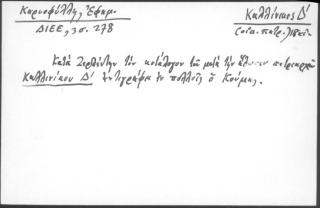 Καρυοφύλλης Ἐφημ.
ΔΙΕΕ, 3 σ. 278
Καλλίνικος Δ´
(οἰκ. πατρ.) 18 αἰ.
Κατὰ Σερλέντην τὸν κατάλογον τῶν μετὰ τὴν ἅλωσιν πατριαρχῶν
Καλλινίκου Δ´ ἀντιγράφει ἐν πολλοῖς ὁ Κούμας.